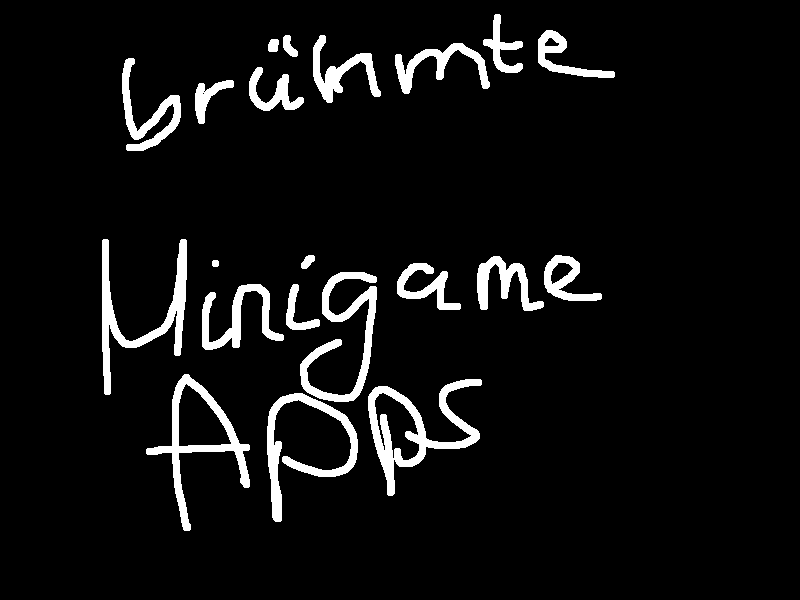 brühmte
Minigame
Apps